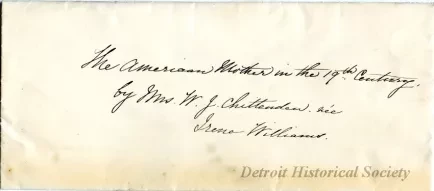 The American Mother in the 19th Century.
by Mrs. W. J. Chittenden. née
Irene Williams.
Detroit Historical Society